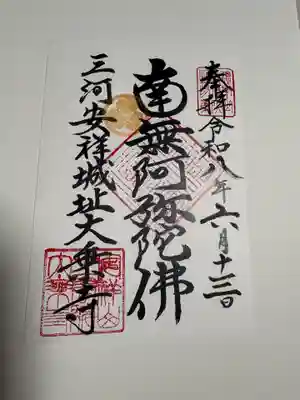 奉拝 令和八年六月十三日
南無阿弥陀佛
三河安祥城址大乗寺